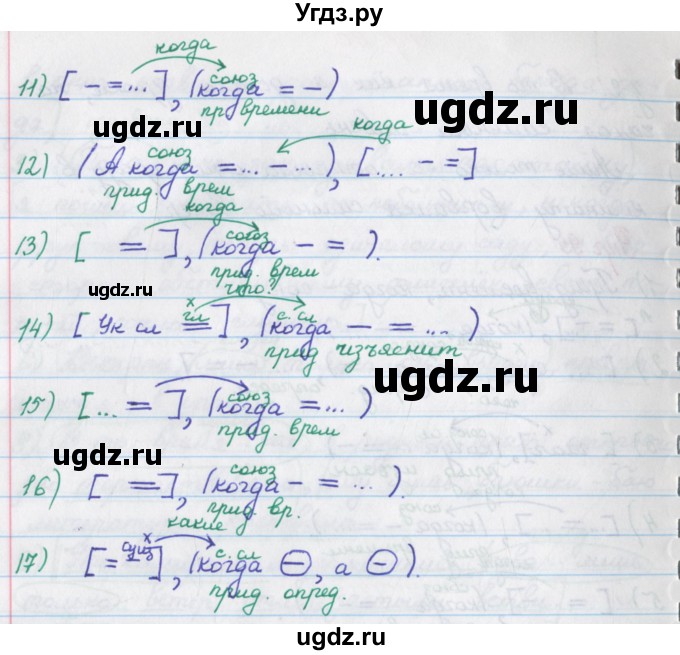 Угдз.ру
когда
11) [ - = ... ], ( когда = - )
союз
пр времени
ugdz.ru
ugdz.ru
когда
12) ( А когда = ... ... ), [ .... - = ]
союз
прид. врем
когда
13) [ = ], ( когда - = ).
союз
прид. врем
ugdz.ru
что?
14) [ Ук сл = ], ( когда - = ... )
х
гл
с. сл
прид изъяснит
ugdz.ru
15) [ ... = ], ( когда = ... )
союз
прид. врем
ugdz.ru
16) [ = ], ( когда - = ... ).
союз
прид. вр.
какие
17) [ = сущ ], ( когда ⊖, а ⊖ ).
х
с. сл
прид. опред.
ugdz.ru
ugdz.ru